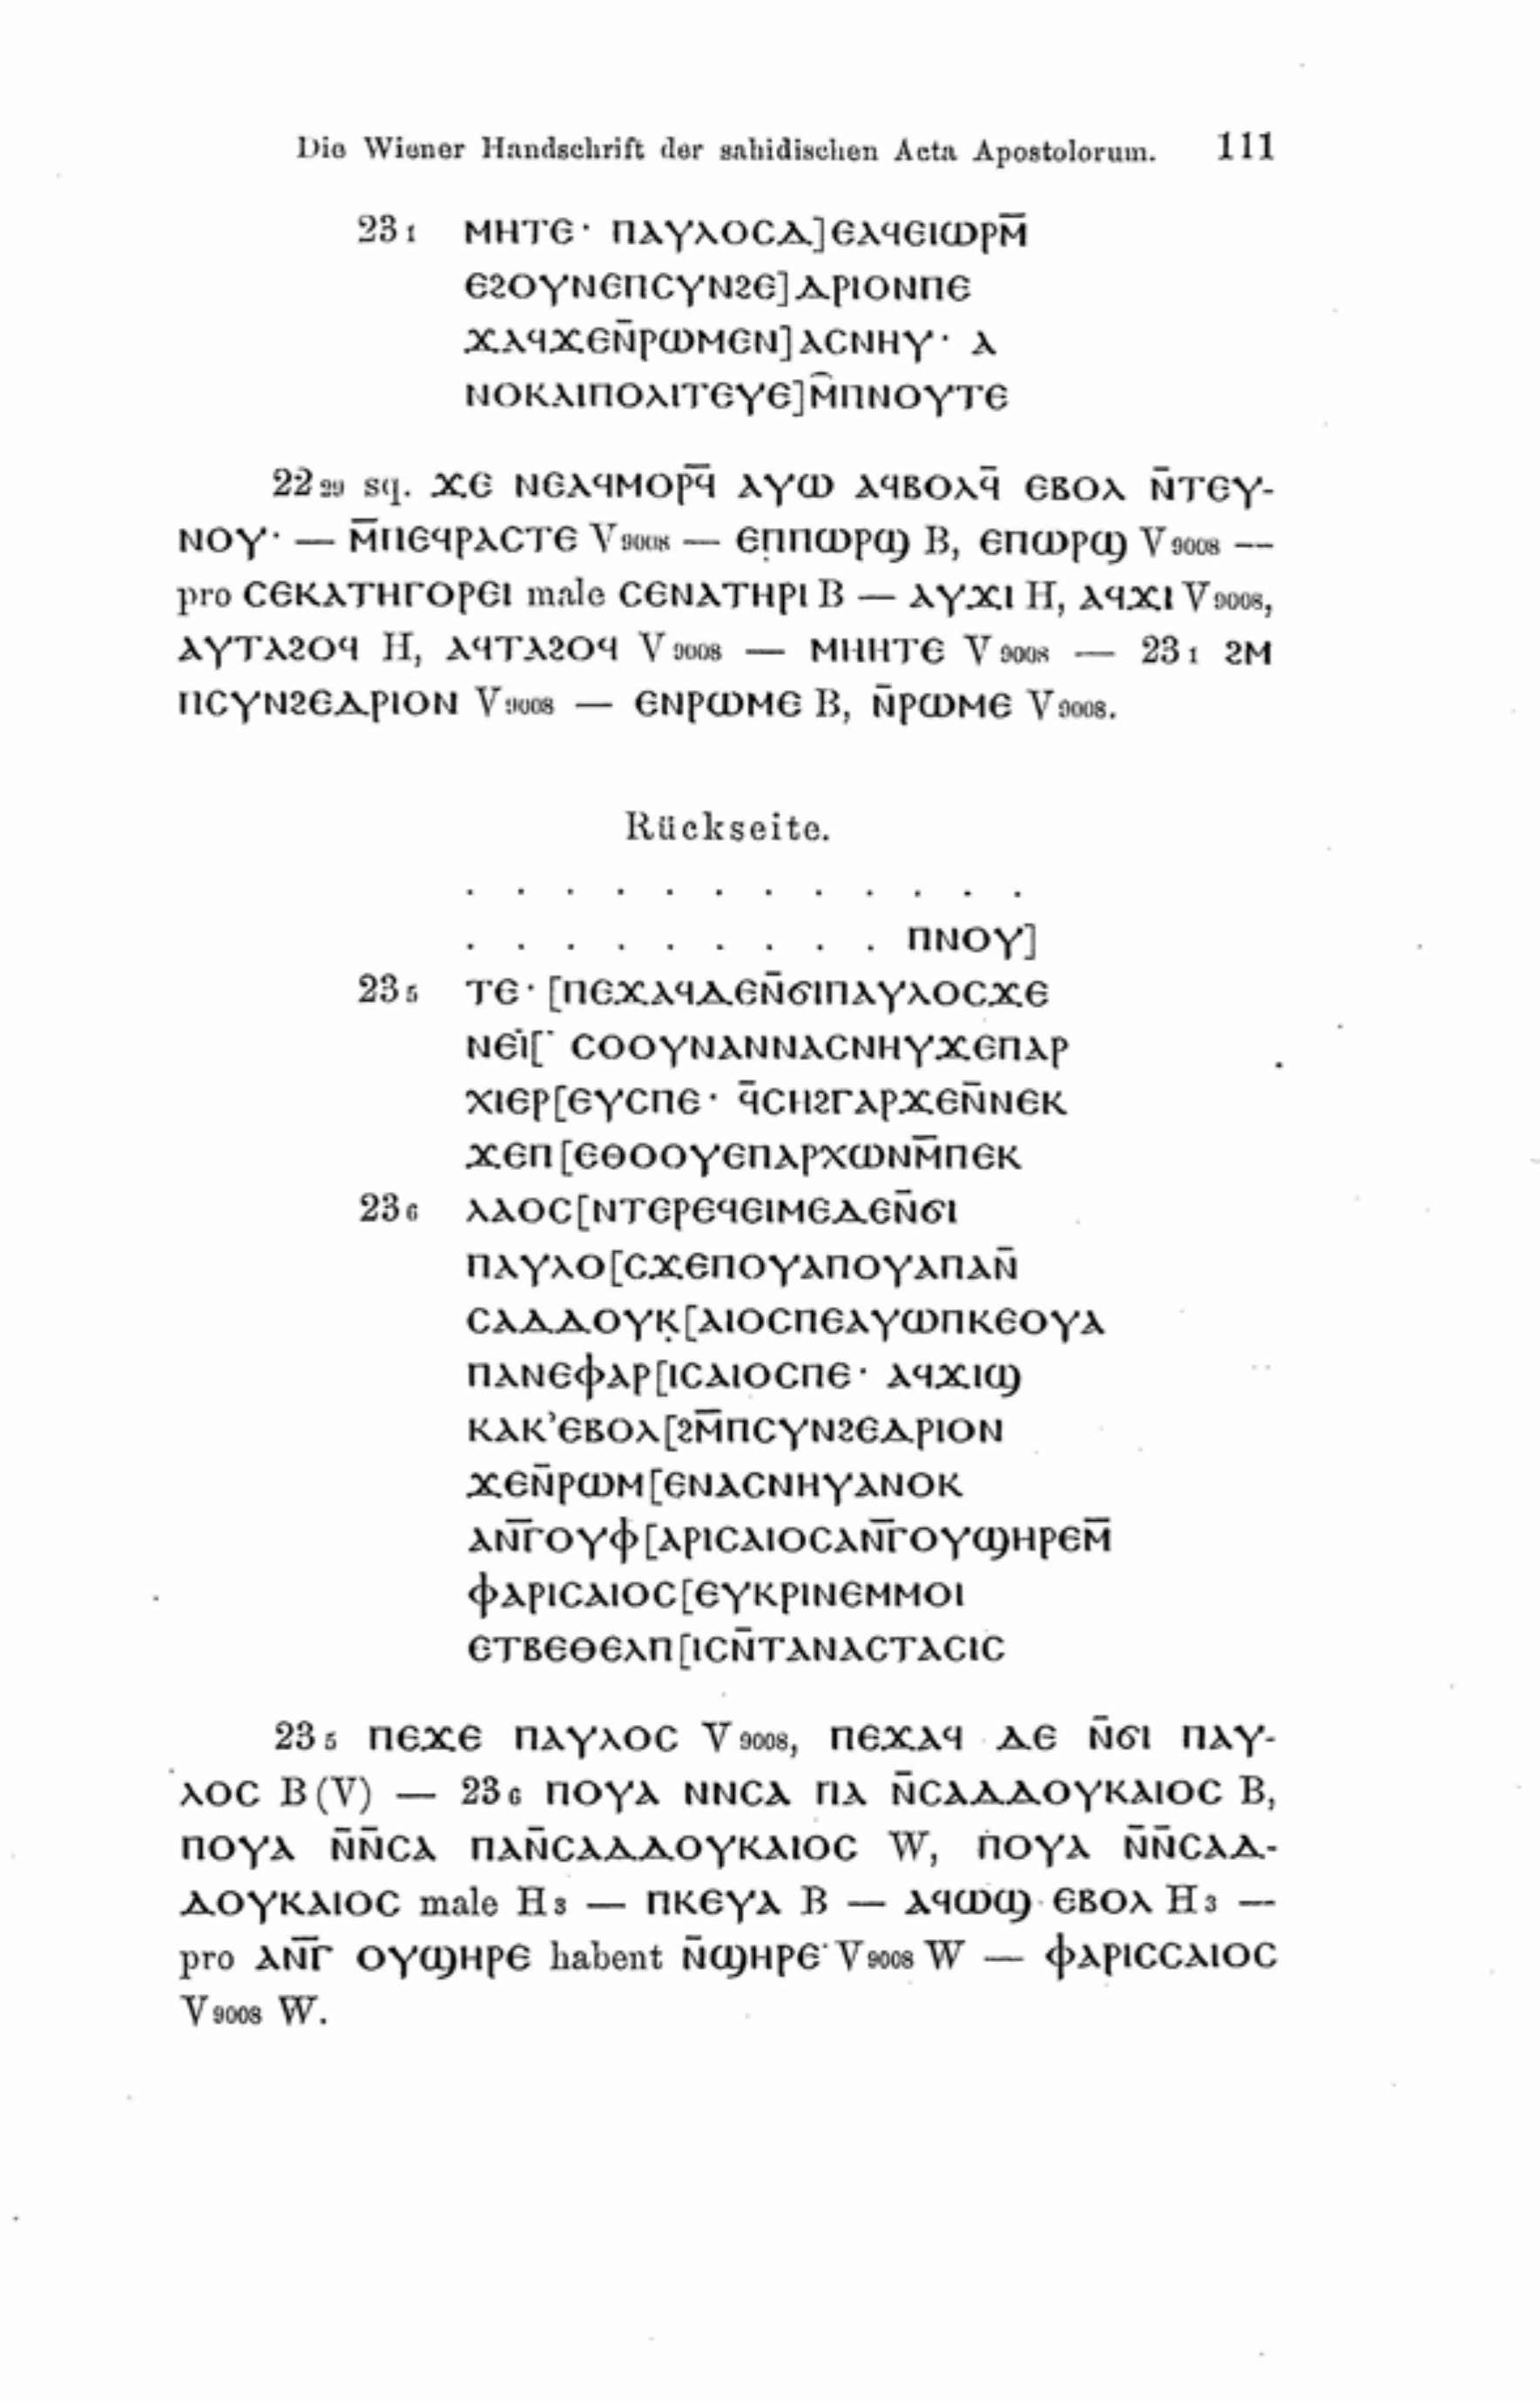 Die Wiener Handschrift der sahidischen Acta Apostolorum. 111
23 1 ⲘⲎⲦⲈ· ⲠⲀⲨⲖⲞⲤⲆ]ⲈⲀϤⲈⲒⲰⲢⲘ̅
ⲈϨⲞⲨⲚⲈⲠⲤⲨⲚϨⲈ]ⲆⲢⲒⲞⲚⲠⲈ
ϪⲀϤϪⲈⲚ̅ⲢⲰⲘⲈⲚ]ⲀⲤⲚⲎⲨ· Ⲁ
ⲚⲞⲔⲀⲒⲠⲞⲖⲒⲦⲈⲨⲈ]Ⲙ̅ⲠⲚⲞⲨⲦⲈ
22 29 sq. ϪⲈ ⲚⲈⲀϤⲘⲞⲢϤ̅ ⲀⲨⲰ ⲀϤⲂⲞⲖϤ̅ ⲈⲂⲞⲖ Ⲛ̅ⲦⲈⲨ-
ⲚⲞⲨ· — Ⲙ̅ⲠⲈϤⲢⲀⲤⲦⲈ V 9008 — ⲈⲠ̣ⲠⲰⲢϢ B, ⲈⲠⲰⲢϢ V 9008 —
pro ⲤⲈⲔⲀⲦⲎⲅⲞⲢⲈⲒ male ⲤⲈⲚⲀⲦⲎⲢⲒ B — ⲀⲨϪⲒ H, ⲀϤϪⲒ V 9008,
ⲀⲨⲦⲀϨⲞϤ H, ⲀϤⲦⲀϨⲞϤ V 9008 — ⲘⲎⲎⲦⲈ V 9008 — 23 1 ϨⲘ
ⲠⲤⲨⲚϨⲈⲆⲢⲒⲞⲚ V 9008 — ⲈⲚⲢⲰⲘⲈ B, Ⲛ̅ⲢⲰⲘⲈ V 9008.
Rückseite.
. . . . . . . . . . . .
. . . . . . . . . ⲠⲚⲞⲨ]
23 5 ⲦⲈ· [ⲠⲈϪⲀϤⲆⲈⲚ̅ϬⲒⲠⲀⲨⲖⲞⲤϪⲈ
ⲚⲈⲒ̈[˙ ⲤⲞⲞⲨⲚⲀⲚⲚⲀⲤⲚⲎⲨϪⲈⲠⲀⲢ
ⲬⲒⲈⲢ[ⲈⲨⲤⲠⲈ· Ϥ̅ⲤⲎϨⲄⲀⲢϪⲈⲚ̅ⲚⲈⲔ
ϪⲈⲠ[ⲈⲐⲞⲞⲨⲈⲠⲀⲢⲬⲰⲚⲘ̅ⲠⲈⲔ
23 6 ⲖⲀⲞⲤ[ⲚⲦⲈⲢⲈϤⲈⲒⲘⲈⲆⲈⲚ̅ϬⲒ
ⲠⲀⲨⲖⲞ[ⲤϪⲈⲠⲞⲨⲀⲠⲞⲨⲀⲠⲀⲚ̅
ⲤⲀⲆⲆⲞⲨⲔ̣[ⲀⲒⲞⲤⲠⲈⲀⲨⲰⲠⲔⲈⲞⲨⲀ
ⲠⲀⲚⲈⲪⲀⲢ[ⲒⲤⲀⲒⲞⲤⲠⲈ· ⲀϤϪⲒϢ
ⲔⲀⲔ’ⲈⲂⲞⲖ[ϨⲘ̅ⲠⲤⲨⲚϨⲈⲆⲢⲒⲞⲚ
ϪⲈⲚ̅ⲢⲰⲘ[ⲈⲚⲀⲤⲚⲎⲨⲀⲚⲞⲔ
ⲀⲚ̅Ⲅ̅ⲞⲨⲪ[ⲀⲢⲒⲤⲀⲒⲞⲤⲀⲚ̅Ⲅ̅ⲞⲨϢⲎⲢⲈⲘ̅
ⲪⲀⲢⲒⲤⲀⲒⲞⲤ[ⲈⲨⲔⲢⲒⲚⲈⲘⲘⲞⲒ
ⲈⲦⲂⲈⲐⲈⲖⲠ[ⲒⲤⲚ̅ⲦⲀⲚⲀⲤⲦⲀⲤⲒⲤ
23 5 ⲠⲈϪⲈ ⲠⲀⲨⲖⲞⲤ V 9008, ⲠⲈϪⲀϤ ⲆⲈ Ⲛ̅ϬⲒ ⲠⲀⲨ-
ⲖⲞⲤ B (V) — 23 6 ⲠⲞⲨⲀ ⲚⲚⲤⲀ ⲠⲀ Ⲛ̅ⲤⲀⲆⲆⲞⲨⲔⲀⲒⲞⲤ B,
ⲠⲞⲨⲀ Ⲛ̅Ⲛ̅ⲤⲀ ⲠⲀⲚ̅ⲤⲀⲆⲆⲞⲨⲔⲀⲒⲞⲤ W, ⲠⲞⲨⲀ Ⲛ̅Ⲛ̅ⲤⲀⲆ-
ⲆⲞⲨⲔⲀⲒⲞⲤ male H 3 — ⲠⲔⲈⲨⲀ B — ⲀϤⲰϢ ⲈⲂⲞⲖ H 3 —
pro ⲀⲚ̅Ⲅ̅ ⲞⲨϢⲎⲢⲈ habent Ⲛ̅ϢⲎⲢⲈ V 9008 W — ⲪⲀⲢⲒⲤⲤⲀⲒⲞⲤ
V 9008 W.